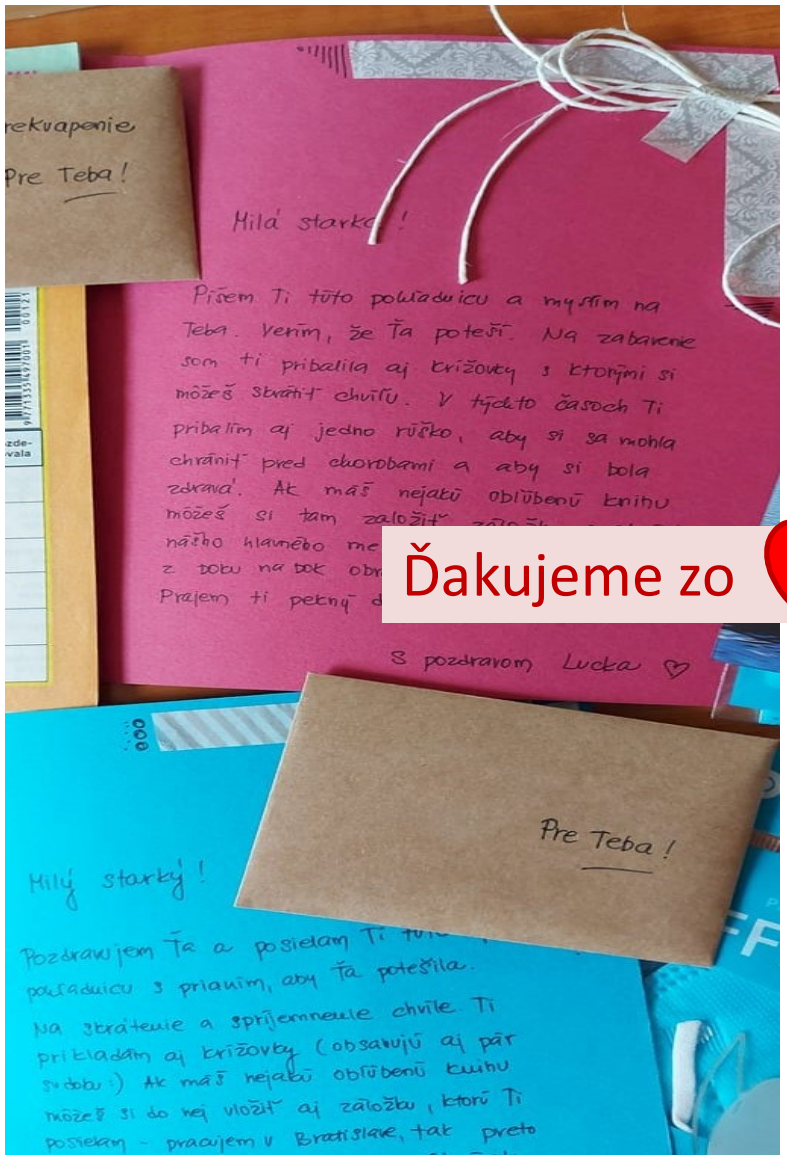 rekvapenie
Pre Teba!
Milá starká!
Píšem Ti túto pohľadnicu a myslím na
Teba. Verím, že Ťa poteší. Na zabavenie
som ti pribalila aj krížovky s ktorými si
môžeš skrátiť chvíľu. V týchto časoch Ti
pribalím aj jedno rúško, aby si sa mohla
chrániť pred chorobami a aby si bola
zdravá. Ak máš nejakú obľúbenú knihu
môžeš si tam založiť
nášho hlavného me
z boku na bok obr
Prajem ti pekný d
S pozdravom Lucka
9771335497001 00121
zde-
vala
Ďakujeme zo
Pre Teba!
Milý starký!
Pozdravujem Ťa a posielam Ti
pohľadnicu s prianím, aby Ťa potešila.
Na skrátenie a spríjemnenie chvíle Ti
prikladám aj krížovky (obsahujú aj pár
sudoku :) Ak máš nejakú obľúbenú knihu
môžeš si do nej vložiť aj záložku, ktorú Ti
posielam - pracujem v Bratislave, tak preto
FF